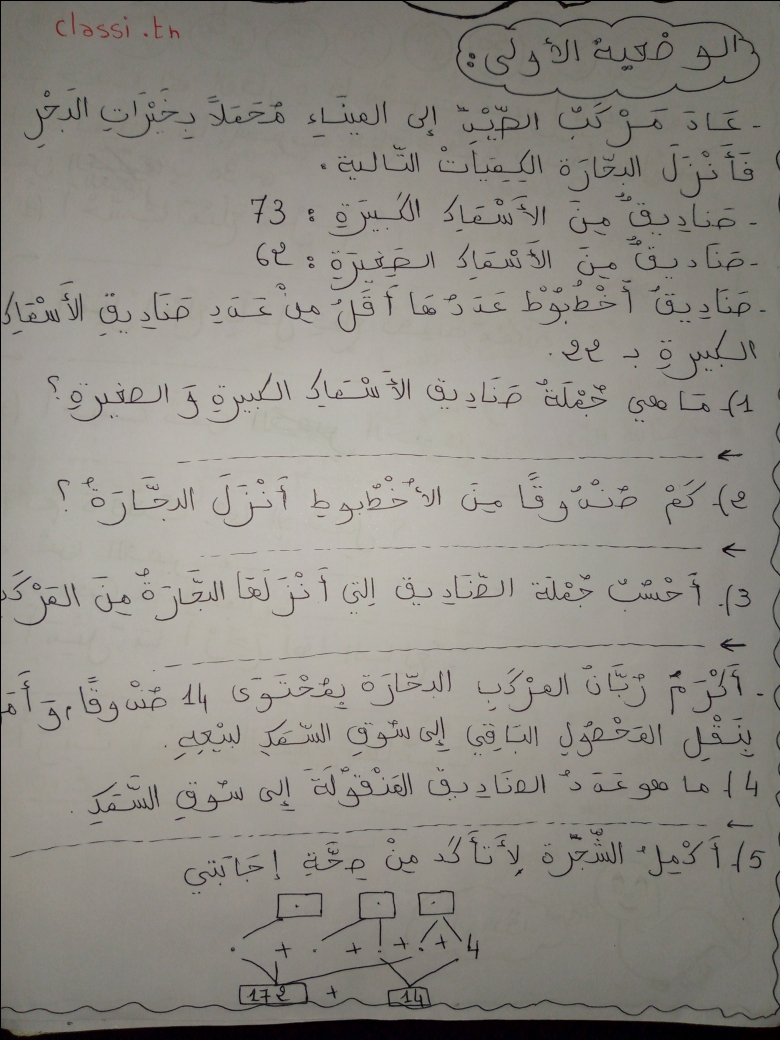 classi.tn
الوضعية الأولى:
- عَادَ مَرْكَبُ الصَّيْدِ إلى المِينَاءِ مُحَمَّلاً بِخَيْرَاتِ البَحْرِ
فَأَنْزَلَ البحّارَة الكِمِيَاتْ التّالية.
- صَناديقٌ مِنَ الأَسْمَاكِ الكَبِيرَةِ: 73
- صَنَاديقٌ مِنَ الأَسْمَاكِ الصَغِيرَةِ: 62
- صَنَاديقُ أُخْطُبُوْط عَدَدُهَا أَقَلُ مِنْ عَدَدِ صَنَادِيقِ الأَسْمَاكِ
الكبيرةِ بـ 22.
1)- مَا هي جُمْلَةُ صَنَاديق الأَسْمَاكِ الكبيرةِ وَ الصغيرةِ؟
←
2)- كَمْ صُنْدُوقًا مِنَ الأُخْطُبوطِ أَنْزَلَ البحَّارَةُ؟
←
3)- أَحْسُبُ جُمْلَة الصّنَادِيق التِي أَنْزَلَهَا البَحَّارَةُ مِنَ المَرْكَبِ
←
- أَكْرَمَ رُبَّانُ المرْكَبِ البحّارَة بِمُحْتَوَى 14 صُنْدوقًا، وَأَمَ
بِنَقْلِ المَحْصُولِ البَاقِي إلى سُوقِ السّمَكِ لبَيْعِهِ.
4)- ما هو عَدَدُ الصنَاديق المَنْقُولَةَ إلى سُوقِ السَّمَكِ.
←
5)- أَكْمِلُ الشَّجَرَة لِأَتأَكَّد مِنْ صِحَّةِ إجَابَتي
. + . + . + . + 4
172 + 14